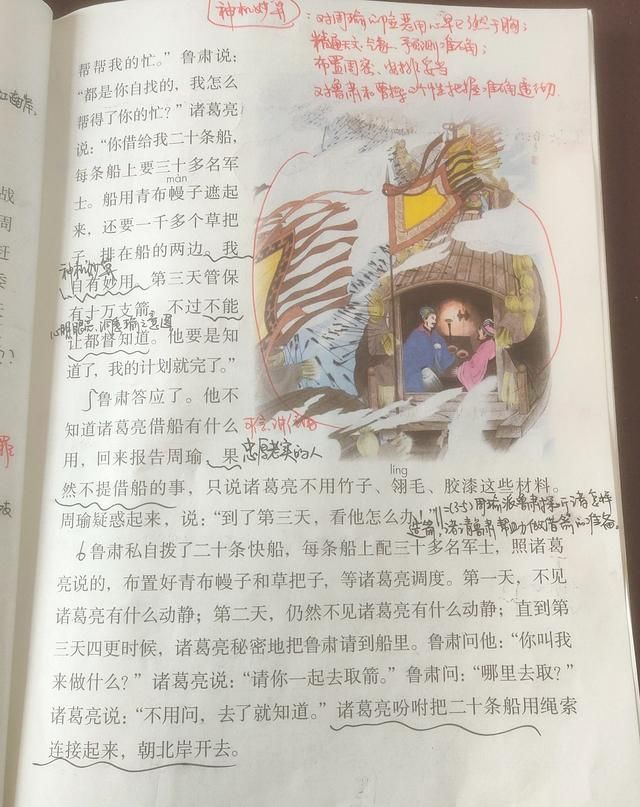 神机妙算
：对周瑜的险恶用心早已了然于胸；
精通天文、气象，预测准确；
布置周密，安排妥当
对鲁肃和曹操的个性把握准确透彻.
帮帮我的忙。”鲁肃说：
“都是你自找的，我怎么
帮得了你的忙？”诸葛亮
说：“你借给我二十条船，
每条船上要三十多名军
màn
士。船用青布幔子遮起
来，还要一千多个草把
子，排在船的两边。我
神机妙算
自有妙用。第三天管保
有十万支箭。不过不能
心明眼亮、洞悉瑜之意图
让都督知道。他要是知
道了，我的计划就完了。”
5鲁肃答应了。他不
知道诸葛亮借船有什么
可会讲信用
用，回来报告周瑜，果
忠厚老实的人
líng
然不提借船的事，只说诸葛亮不用竹子、翎毛、胶漆这些材料。
周瑜疑惑起来，说：“到了第三天，看他怎么办！”
周瑜派鲁肃探诸怎样
造箭，诸请鲁肃帮助做借箭的准备。
6鲁肃私自拨了二十条快船，每条船上配三十多名军士，照诸葛
亮说的，布置好青布幔子和草把子，等诸葛亮调度。第一天，不见
诸葛亮有什么动静；第二天，仍然不见诸葛亮有什么动静；直到第
三天四更时候，诸葛亮秘密地把鲁肃请到船里。鲁肃问他：“你叫我
来做什么？”诸葛亮说：“请你一起去取箭。”鲁肃问：“哪里去取？”
诸葛亮说：“不用问，去了就知道。”诸葛亮吩咐把二十条船用绳索
连接起来，朝北岸开去。